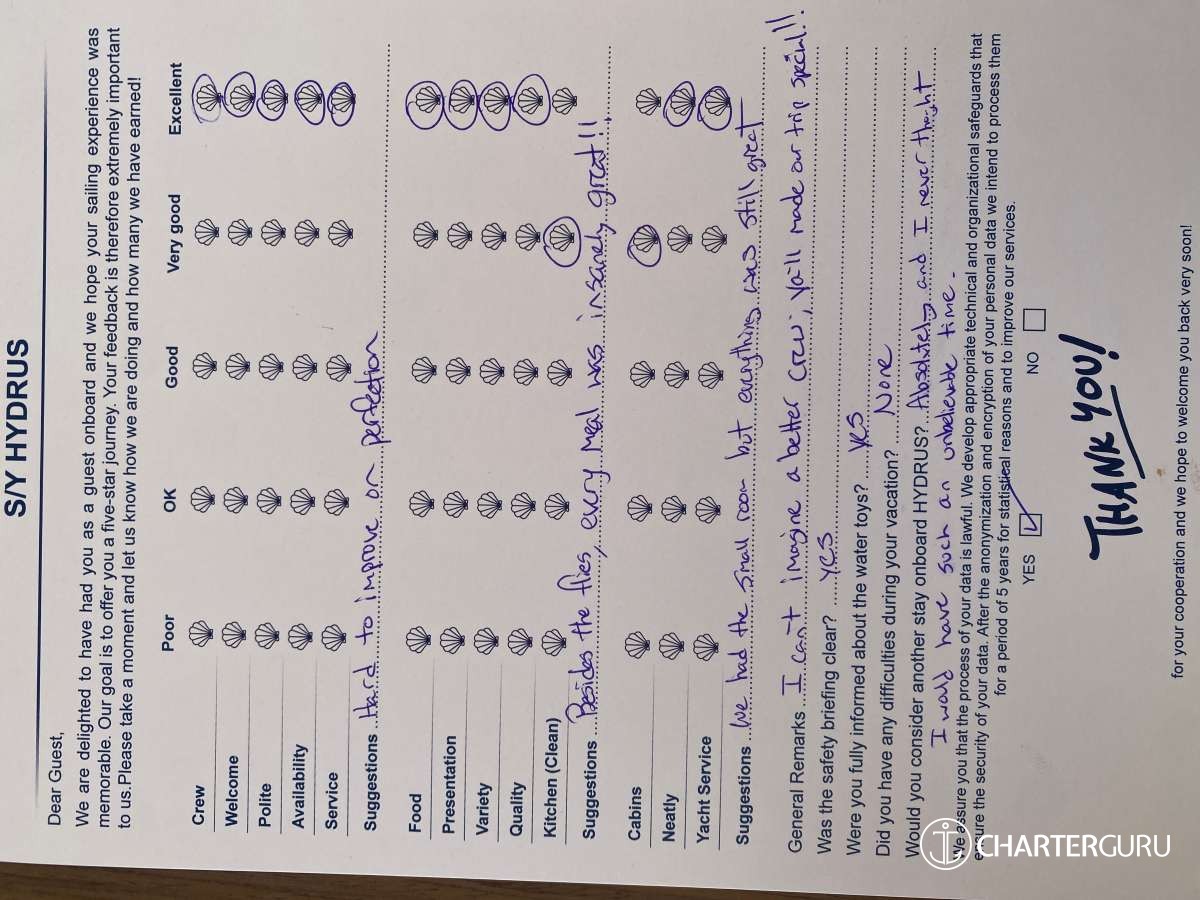 S/Y HYDRUS
Dear Guest,
We are delighted to have had you as a guest onboard and we hope your sailing experience was
memorable. Our goal is to offer you a five-star journey. Your feedback is therefore extremely important
to us.Please take a moment and let us know how we are doing and how many we have earned!
Poor OK Good Very good Excellent
Crew
Welcome
Polite
Availability
Service
Suggestions Hard to improve on perfection
Food
Presentation
Variety
Quality
Kitchen (Clean)
Suggestions Besides the flies, every meal was insanely great!!
Cabins
Neatly
Yacht Service
Suggestions We had the small room but everything was still great
General Remarks I can't imagine a better crew; ya'll made our trip special!!
Was the safety briefing clear? yes
Were you fully informed about the water toys? yes
Did you have any difficulties during your vacation? None
Would you consider another stay onboard HYDRUS? Absolutely and I never thought
I would have such an unbelievable time.
We assure you that the process of your data is lawful. We develop appropriate technical and organizational safeguards that
ensure the security of your data. After the anonymization and encryption of your personal data we intend to process them
for a period of 5 years for statistical reasons and to improve our services.
YES NO
THANK YOU!
for your cooperation and we hope to welcome you back very soon!
CHARTERGURU